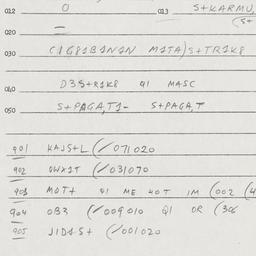 012 0 013 S+KARMU,
(S+
020 =
030 (1G81BANAN MATA)S+TR1K8
040 D3S+R1K8 Q1 MASC
050 S+PAGA,T1- S+PAGA,T
901 KAJS+L (/071020
902 OWX1T (/031070
903 MOT+ Q1 ME 40T IM (002 (4
904 OB3 (/009010 Q1 OR (306
905 JID4S+ (/001020